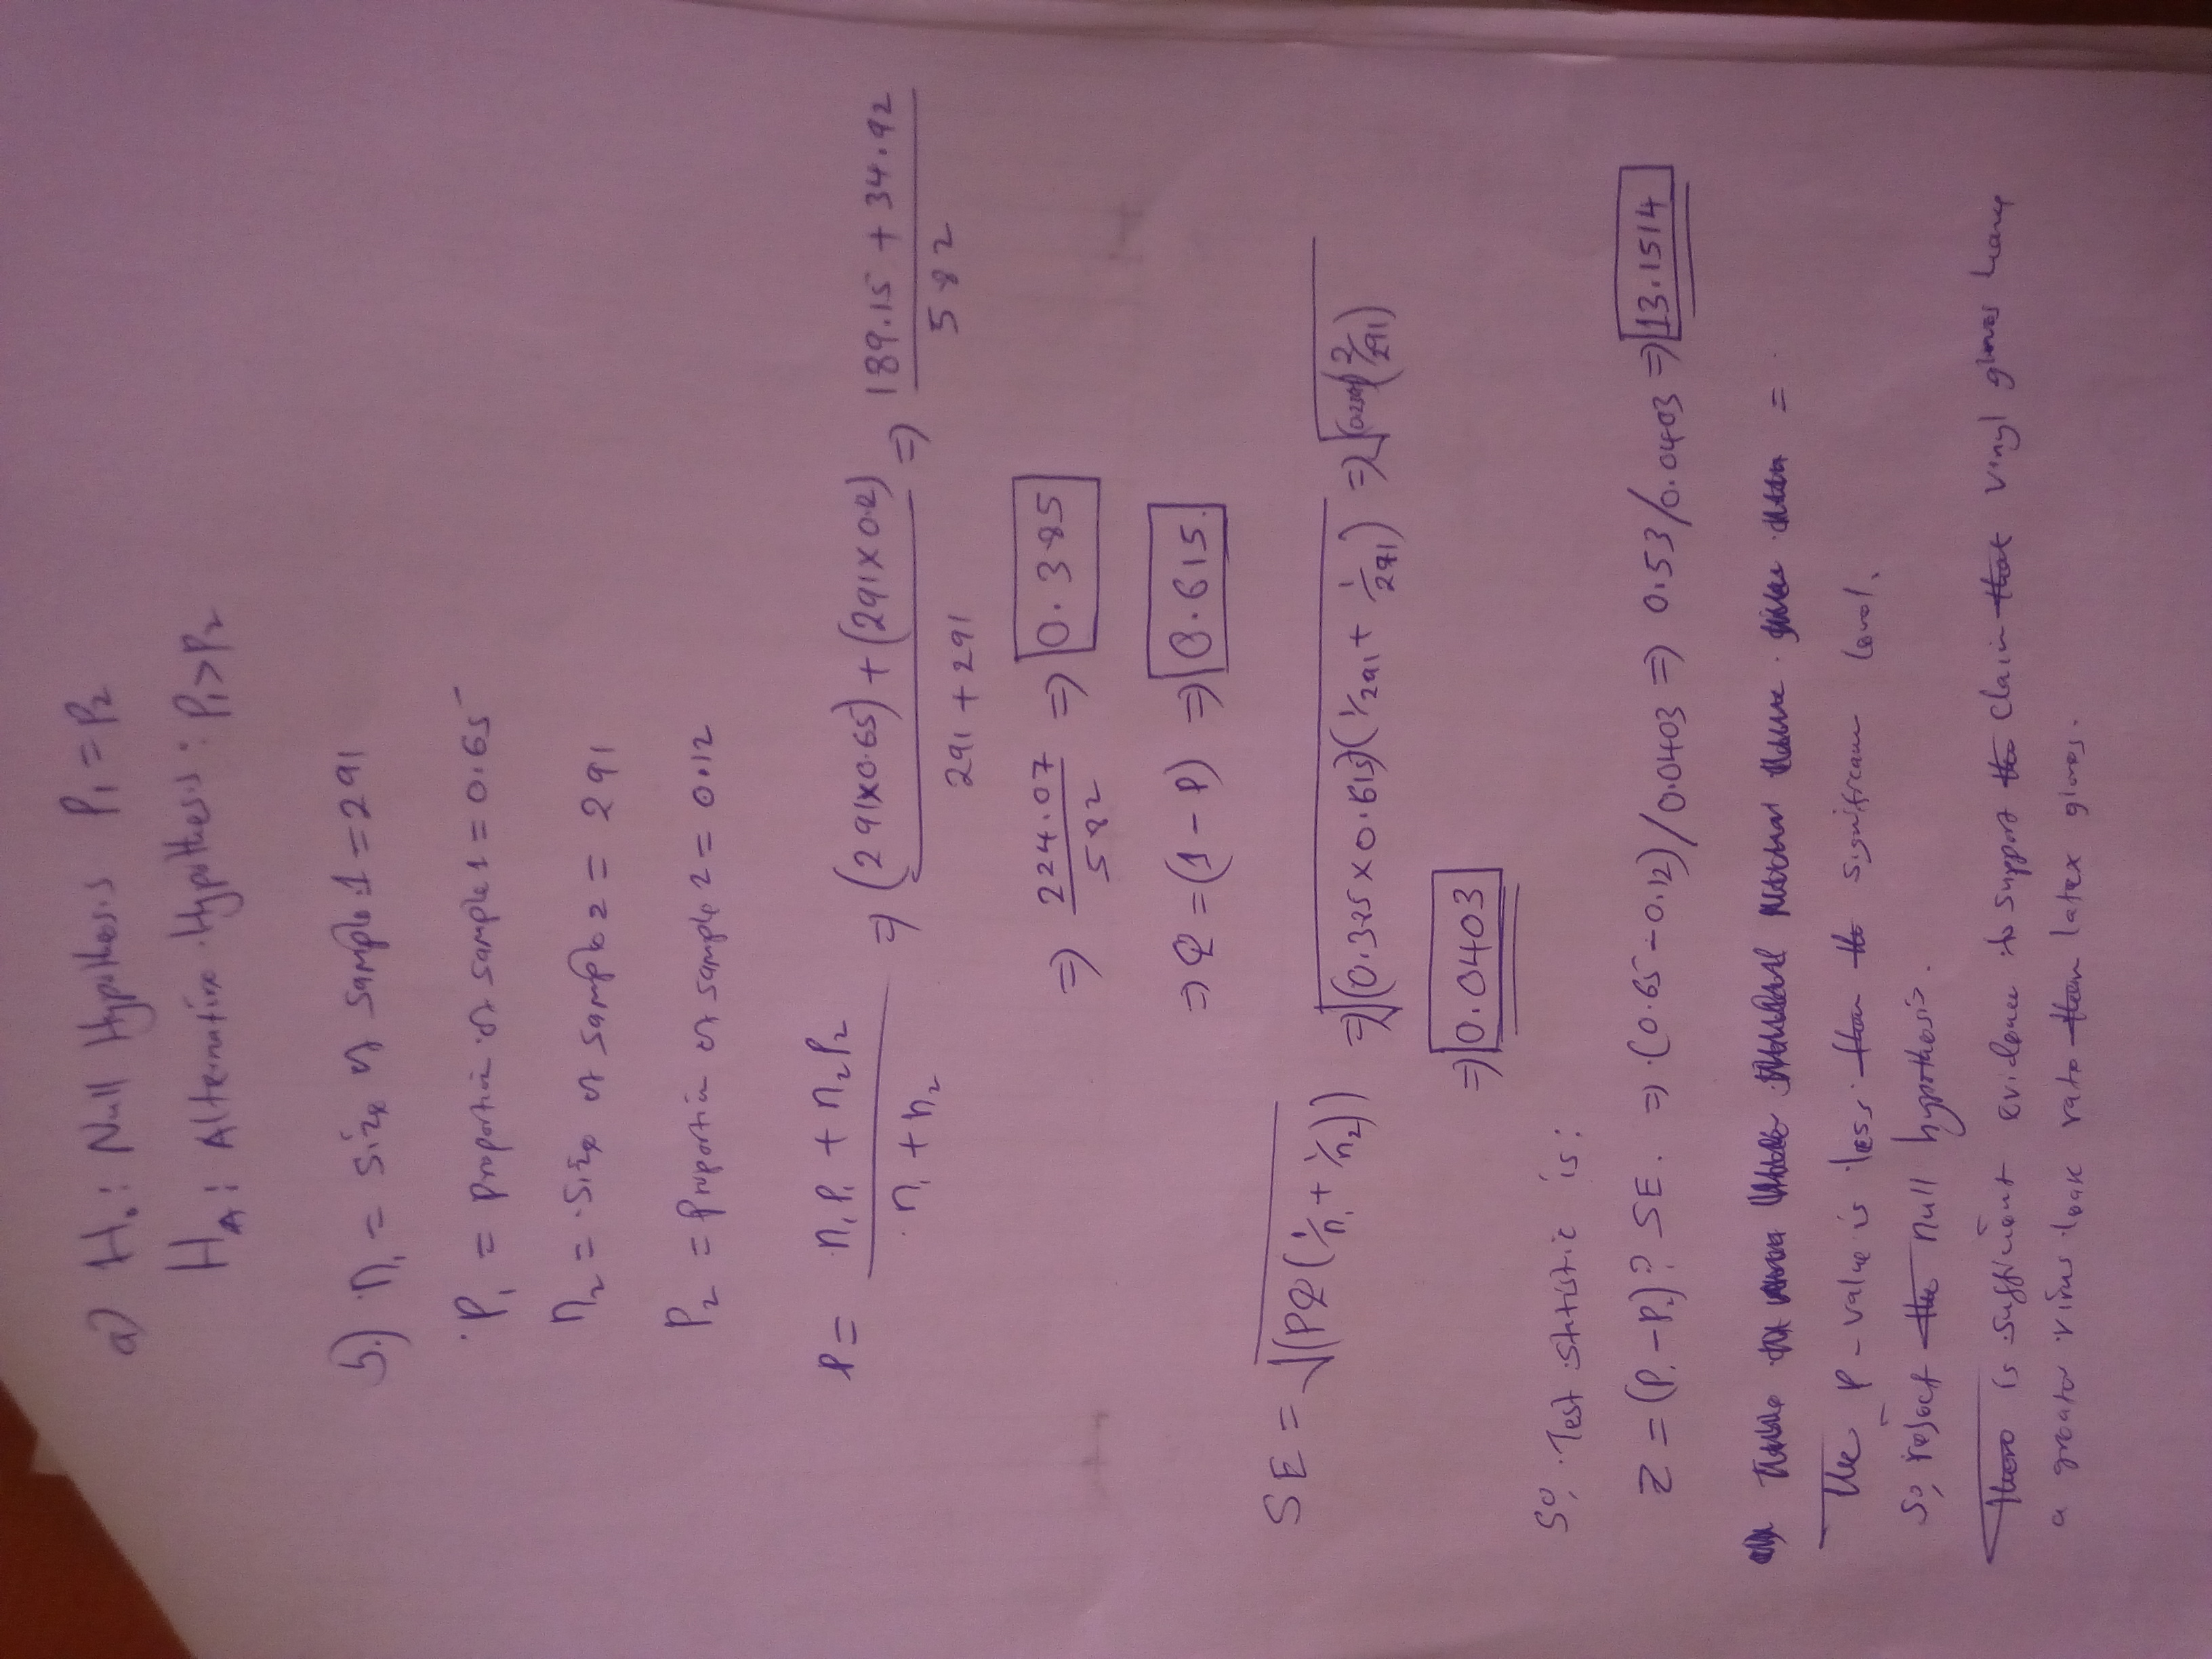 a) H₀: Null Hypothesis P₁ = P₂
H_A: Alternative Hypothesis: P₁ > P₂
b) n₁ = Size of Sample 1 = 291
P₁ = Proportion of sample 1 = 0.65
n₂ = Size of sample 2 = 291
P₂ = Proportion of sample 2 = 0.12
P = (n₁P₁ + n₂P₂) / (n₁ + n₂) ⇒ ((291x0.65) + (291x0.12)) / (291 + 291) ⇒ (189.15 + 34.92) / 582
⇒ 224.07 / 582 ⇒ 0.385
⇒ Q = (1 - P) ⇒ 0.615
SE = √(PQ(1/n₁ + 1/n₂)) ⇒ √(0.385 x 0.615)(1/291 + 1/291) ⇒ √( )(2/291)
⇒ 0.0403
So, Test statistic is:
Z = (P₁ - P₂)? SE. ⇒ (0.65 - 0.12)/0.0403 ⇒ 0.53/0.0403 ⇒ 13.1514
The P-value is less than the significance level.
So, reject the null hypothesis.
There is sufficient evidence to support the claim that vinyl gloves have
a greater virus leak rate than latex gloves.